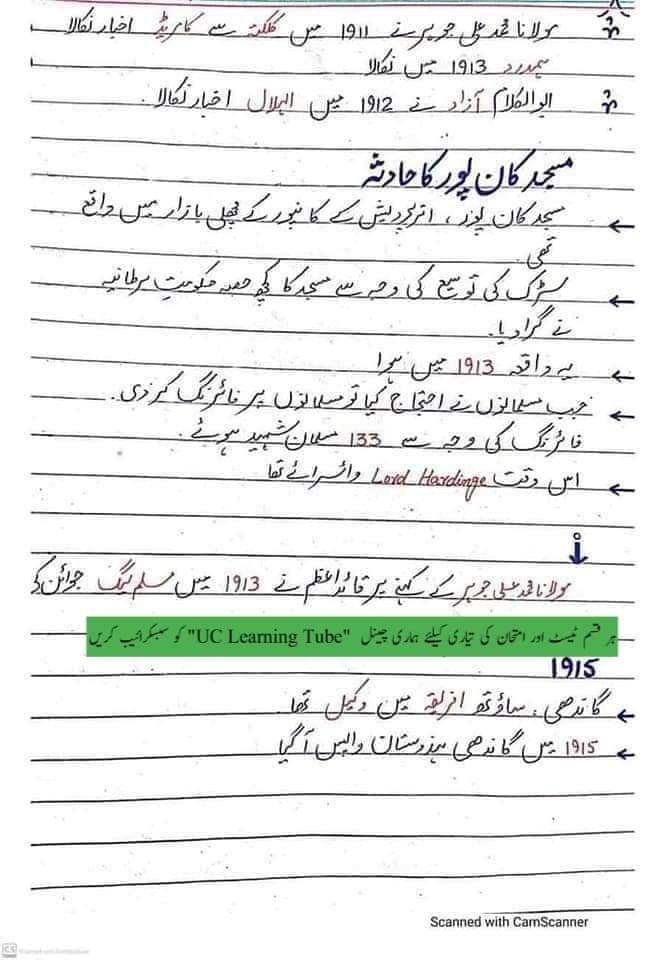 مولانا محمد علی جوہر نے 1911 میں کلکتہ سے کامریڈ اخبار نکالا
ہمدرد 1913 میں نکالا
ابوالکلام آزاد نے 1912 میں الہلال اخبار نکالا.
مسجد کان پور کا حادثہ
← مسجد کان پور، اترپردیش کے کانپور کے مچھلی بازار میں واقع
تھی.
← سڑک کی توسیع کی وجہ سے مسجد کا کچھ حصہ حکومتِ برطانیہ
نے گرا دیا.
← یہ واقعہ 1913 میں ہوا
← جب مسلمانوں نے احتجاج کیا تو مسلمانوں پر فائرنگ کر دی.
فائرنگ کی وجہ سے 133 مسلمان شہید ہوئے.
← اس وقت Lord Hardinge وائسرائے تھا
↓
مولانا محمد علی جوہر کے کہنے پر قائداعظم نے 1913 میں مسلم لیگ جوائن کی
ہر قسم ٹیسٹ اور امتحان کی تیاری کیلئے ہماری چینل "UC Learning Tube" کو سبسکرائیب کریں
1915
← گاندھی، ساؤتھ افریقہ میں وکیل تھا.
← 1915 میں گاندھی ہندوستان واپس آ گیا
Scanned with CamScanner
CS Scanned with CamScanner